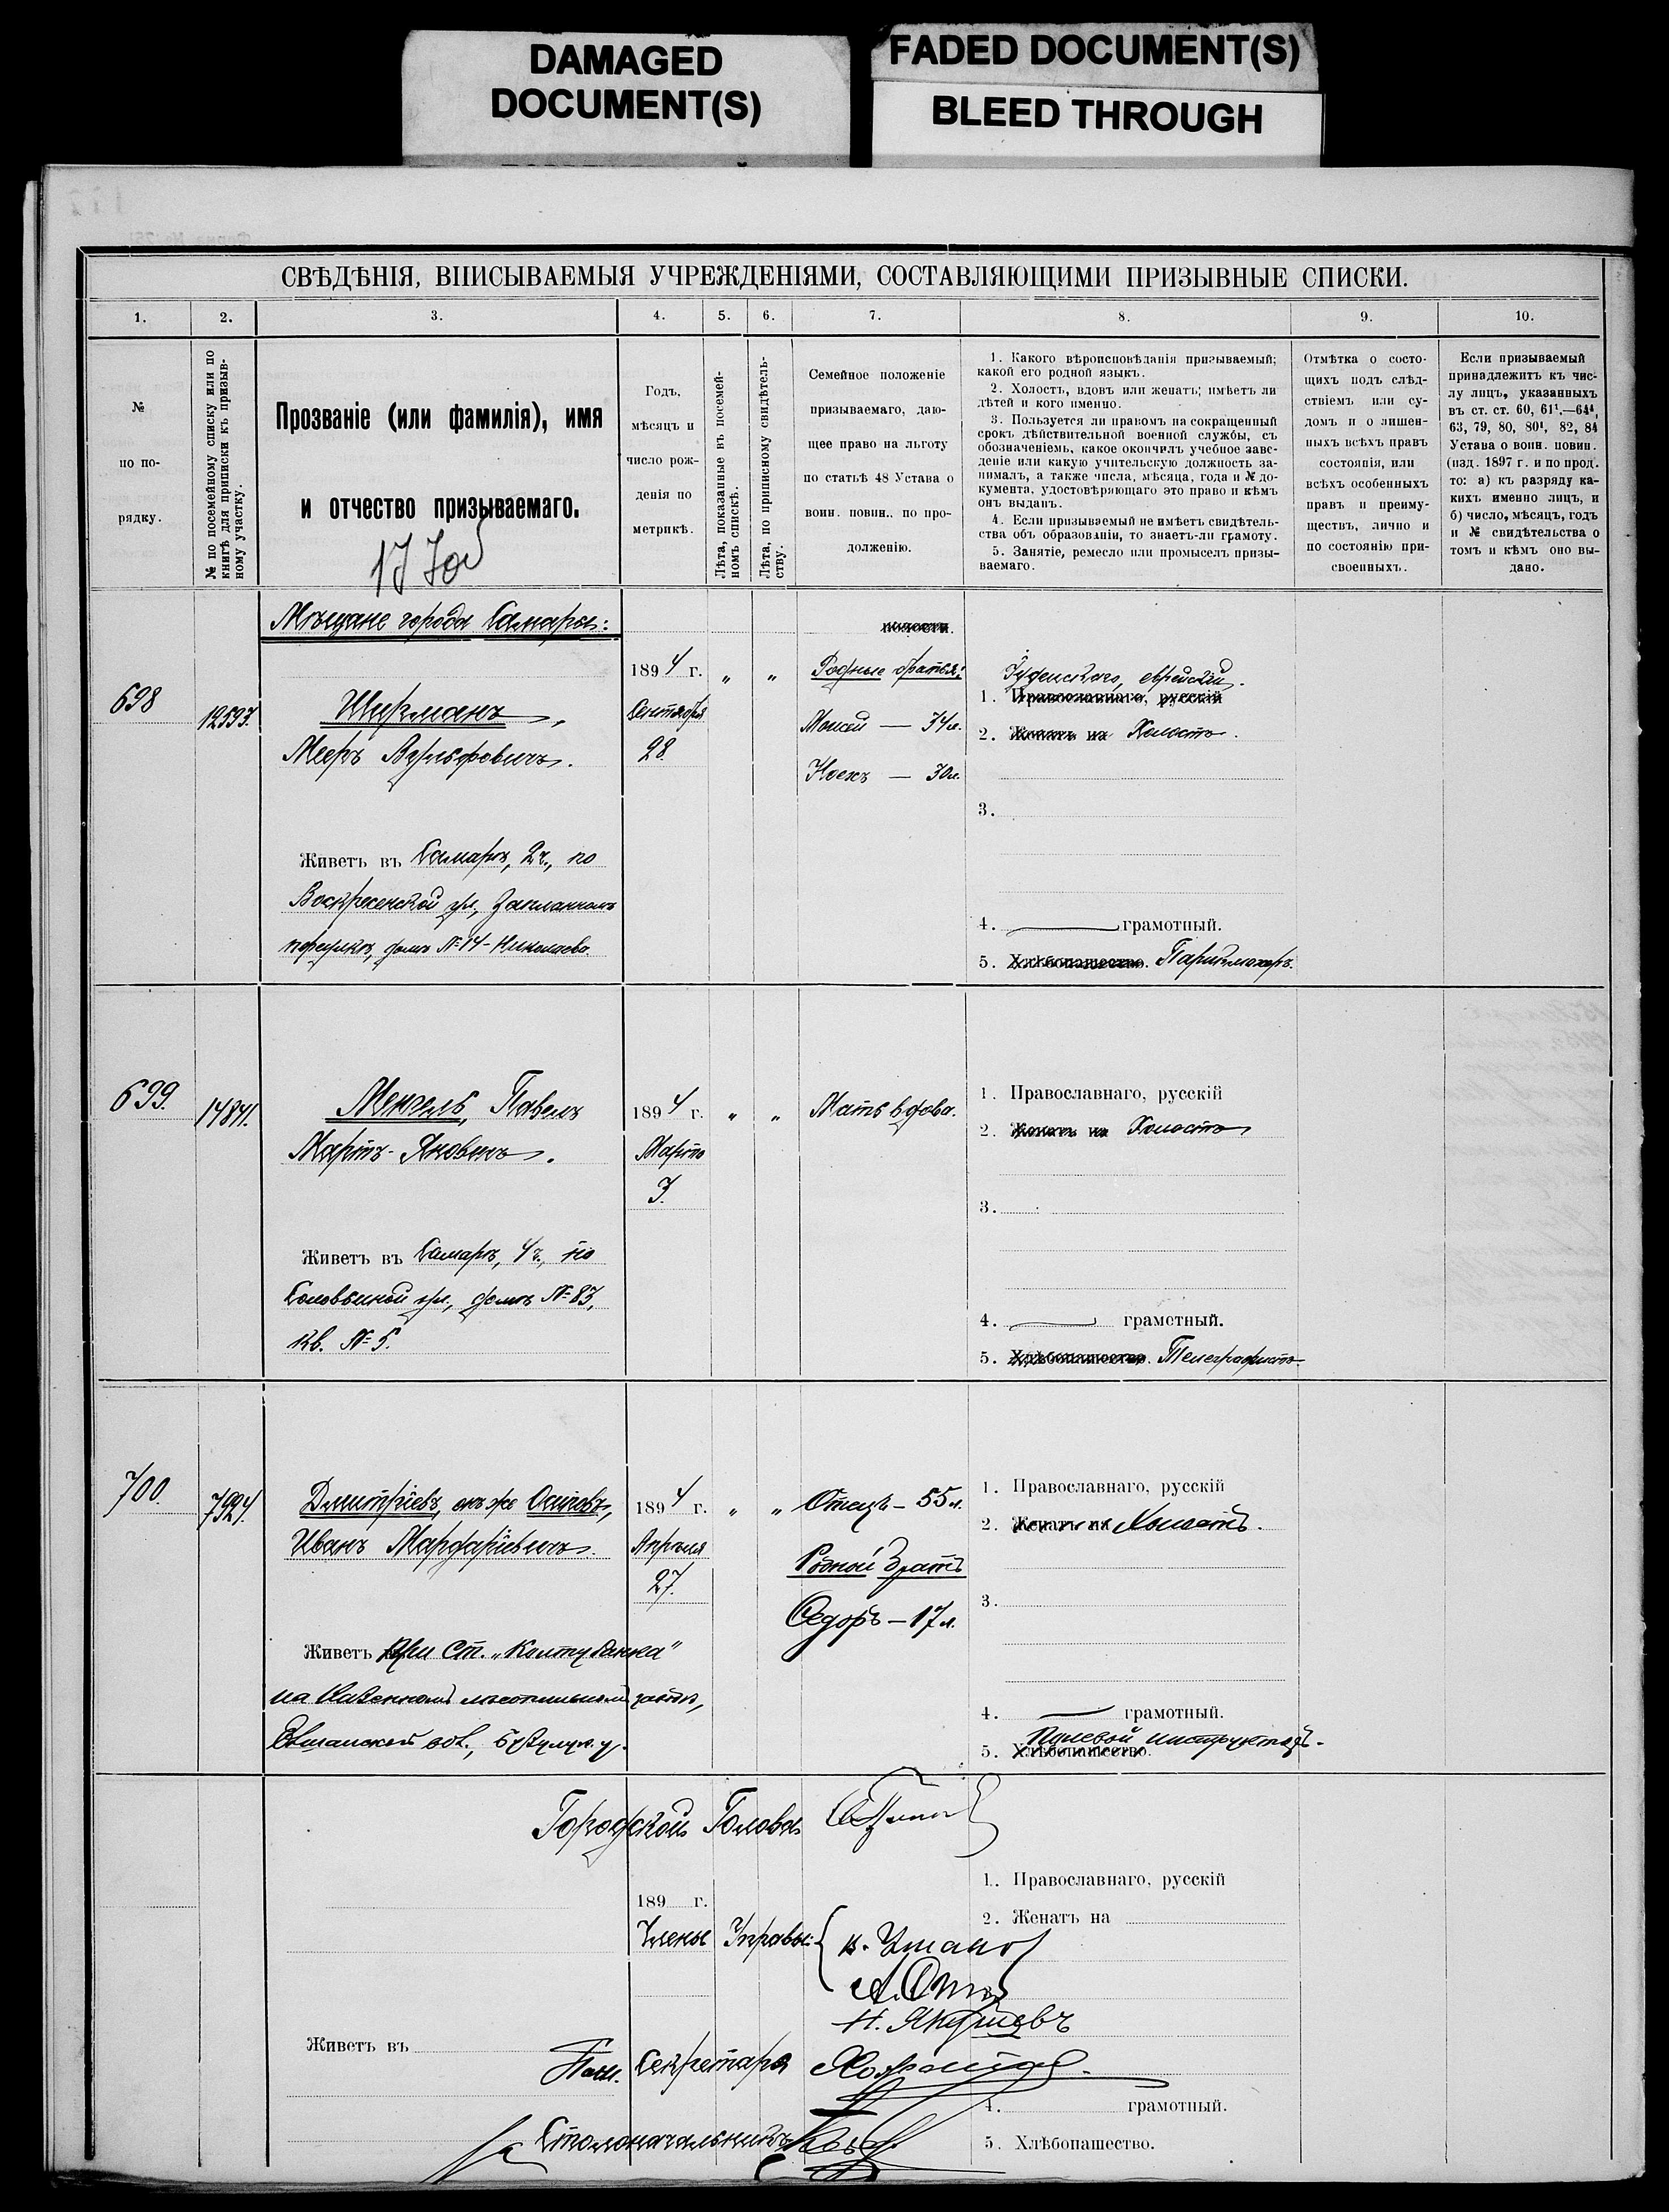 DAMAGED
DOCUMENT(S)
FADED DOCUMENT(S)
BLEED THROUGH
СВѢДѢНІЯ, ВПИСЫВАЕМЫЯ УЧРЕЖДЕНІЯМИ, СОСТАВЛЯЮЩИМИ ПРИЗЫВНЫЕ СПИСКИ.
1. 2. 3. 4. 5. 6. 7. 8. 9. 10.
№
по по-
рядку.
№ по посемейному списку или по
книгѣ для приписки къ призыв-
ному участку.
Прозваніе (или фамилія), имя
и отчество призываемаго.
Годъ,
мѣсяцъ и
число рож-
денія по
метрикѣ.
Лѣта, показанные въ посемей-
номъ спискѣ.
Лѣта, по приписному свидѣтель-
ству.
Семейное положеніе
призываемаго, даю-
щее право на льготу
по статьѣ 48 Устава о
воин. повин.. по про-
долженію.
1. Какого вѣроисповѣданія призываемый;
какой его родной языкъ.
2. Холостъ, вдовъ или женатъ; имѣетъ ли
дѣтей и кого именно.
3. Пользуется ли правомъ на сокращенный
срокъ дѣйствительной военной службы, съ
обозначеніемъ, какое окончилъ учебное заве-
деніе или какую учительскую должность за-
нималъ, а также числа, мѣсяца, года и № до-
кумента, удостовѣряющаго это право и кѣмъ
онъ выданъ.
4. Если призываемый не имѣетъ свидѣтель-
ства объ образованіи, то знаетъ-ли грамоту.
5. Занятіе, ремесло или промыселъ призы-
ваемаго.
Отмѣтка о состо-
щихъ подъ слѣд-
ствіемъ или су-
домъ и о лишен-
ныхъ всѣхъ правъ
состоянія, или
всѣхъ особенныхъ
правъ и преиму-
ществъ, лично и
по состоянію при-
своенныхъ.
Если призываемый
принадлежитъ къ чис-
лу лицъ, указанныхъ
въ ст. ст. 60, 61¹.—64⁴,
63, 79, 80, 80¹, 82, 84
Устава о воин. повин.
(изд. 1897 г. и по прод.
то: а) къ разряду ка-
кихъ именно лицъ, и
б) число, мѣсяцъ, годъ
и № свидѣтельства о
томъ и кѣмъ оно вы-
дано.
Мѣщане города Самары:
волости.
698
12593.
Ширманъ,
Мееръ Вульфовичъ.
1894 г.
Сентября
28.
" "
Родные братья:
Моисей — 34 л.
Ноехъ — 30 л.
Іудейскаго, еврейскій.
1. Православнаго, русскій
2. Женатъ на Холостъ.
3.
4. грамотный.
5. Хлѣбопашество. Парикмахеръ.
Живетъ въ Самарѣ, 2 ч., по
Воскресенской ул.,
переулкѣ, домъ № 14 - Николаева.
699.
14841.
Менгель, Павелъ
Мартъ-Яновичъ.
1894 г.
Марта
3.
" "
Мать вдова.
1. Православнаго, русскій
2. Женатъ на Холостъ
3.
4. грамотный.
5. Хлѣбопашество. Телеграфистъ
Живетъ въ Самарѣ, 4 ч., по
Соловьиной ул., домъ № 83,
кв. № 5.
700.
7924.
Дмитріевъ, онъ же Осиповъ,
Иванъ Мардаріевичъ.
1894 г.
Апрѣля
27.
" "
Отецъ — 55 л.
Родной братъ
Ѳедоръ — 17 л.
1. Православнаго, русскій
2. Женатъ на Холостъ.
3.
4. грамотный.
Полевой инструкторъ.
5. Хлѣбопашество.
Живетъ при ст. „Колтубанка"
на Казенномъ лѣсопильномъ заводѣ,
вол., Бузулук. у.
Городской Голова
1. Православнаго, русскій
189 г.
2. Женатъ на
Члены Управы:
Живетъ въ
Секретаря
4. грамотный.
Столоначальникъ
5. Хлѣбопашество.